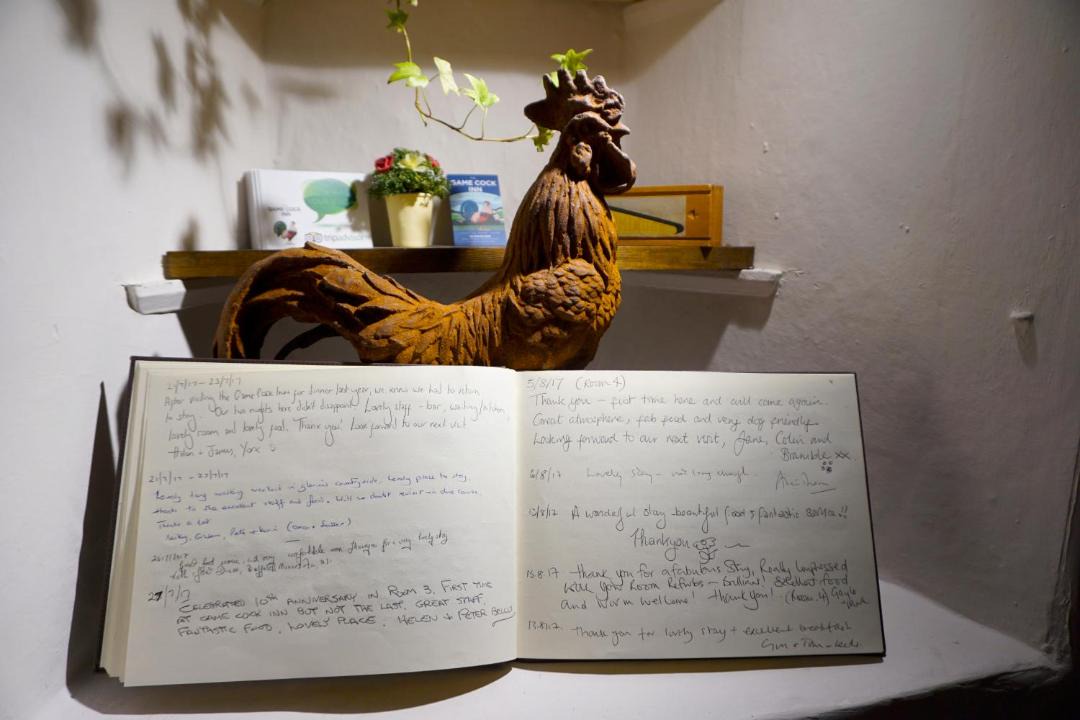 GAME COCK INN
tripadvisor
GAME COCK
INN
21/7/17 - 23/7/17
After visiting the Game Cock Inn for dinner last year, we knew we had to return
to stay. Our two nights here didn't disappoint. Lovely staff - bar, waiting/kitchen,
lovely room and lovely food. Thank you! Look forward to our next visit
Helen + James, York
21/7/17 - 23/7/17
Lovely long walking weekend in glorious countryside. Lovely place to stay,
thanks to the excellent staff and food. Will no doubt revisit in due course.
Thanks a lot
Pete +
very comfortable a very tasty
27/7/17
CELEBRATED 10TH ANNIVERSARY IN ROOM 3. FIRST TIME
AT GAME COCK INN BUT NOT THE LAST. GREAT STAFF,
FANTASTIC FOOD, LOVELY PLACE. HELEN + PETER
5/8/17 (Room 4)
Thank you - first time here and will come again.
Great atmosphere, fab food and very dog friendly.
Looking forward to our next visit, Jane, Colin and
Bramble xx
6/8/17 Lovely stay - not long enough
12/8/17 A wonderful stay beautiful food & fantastic service!!
Thankyou
15.8.17 Thank you for a fabulous stay, Really impressed
with your Room Refurbs - Brilliant! Excellent food
and warm welcome! Thank you! (Room 4) Gayle
13.8.17. Thank you for lovely stay + excellent breakfast